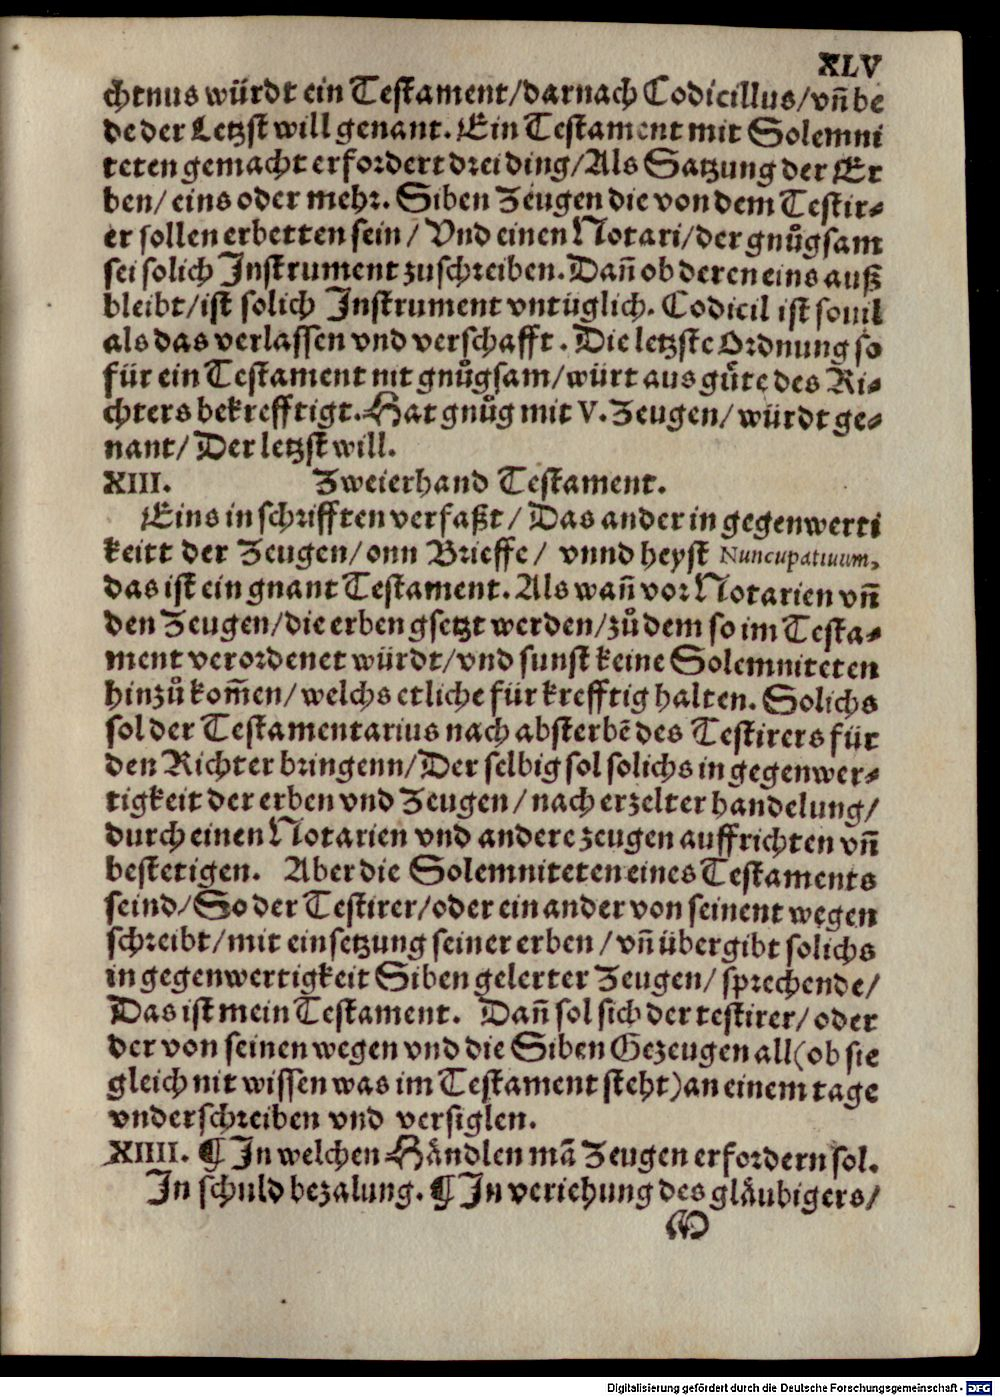 XLV
chtnus würdt ein Testament/darnach Codicillus/vñ be
de der Letzst will genant. Ein Testament mit Solemni
teten gemacht erfordert drei ding/Als Satzung der Er
ben/ eins oder mehr. Siben Zeugen die von dem Testir⸗
er sollen erbetten sein/ Vnd einen Notari/der gnůgsam
sei solich Instrument zuschreiben. Dañ ob deren eins auß
bleibt/ist solich Instrument vntüglich. Codicil ist souil
als das verlassen vnd verschafft. Die letzste Ordnung so
für ein Testament nit gnůgsam/würt aus gůte des Ri⸗
chters bekrefftigt. Hat gnůg mit V. Zeugen/ würdt ge⸗
nant/ Der letzst will.
XIII. Zweierhand Testament.
Eins in schrifften verfaßt/ Das ander in gegenwerti
keitt der Zeugen/onn Brieffe/ vnnd heyst Nuncupatiuum,
das ist ein gnant Testament. Als wañ vor Notarien vñ
den Zeugen/die erben gsetzt werden/zů dem so im Testa⸗
ment verordenet würdt/vnd sunst keine Solemniteten
hinzů kom̃en/welchs etliche für krefftig halten. Solichs
sol der Testamentarius nach absterbẽ des Testirers für
den Richter bringenn/Der selbig sol solichs in gegenwer⸗
tigkeit der erben vnd Zeugen/nach erzelter handelung/
durch einen Notarien vnd andere zeugen auffrichten vñ
bestetigen. Aber die Solemniteten eines Testaments
seind/So der Testirer/oder ein ander von seinent wegen
schreibt/mit einsetzung seiner erben/vñ übergibt solichs
in gegenwertigkeit Siben gelerter Zeugen/ sprechende/
Das ist mein Testament. Dañ sol sich der testirer/oder
der von seinen wegen vnd die Siben Gezeugen all(ob sie
gleich nit wissen was im Testament steht)an einem tage
vnderschreiben vnd versiglen.
XIIII. ¶ In welchen Håndlen mã Zeugen erfordern sol.
In schuld bezalung. ¶ In veriehung des glåubigers/
M
Digitalisierung gefördert durch die Deutsche Forschungsgemeinschaft - DFG